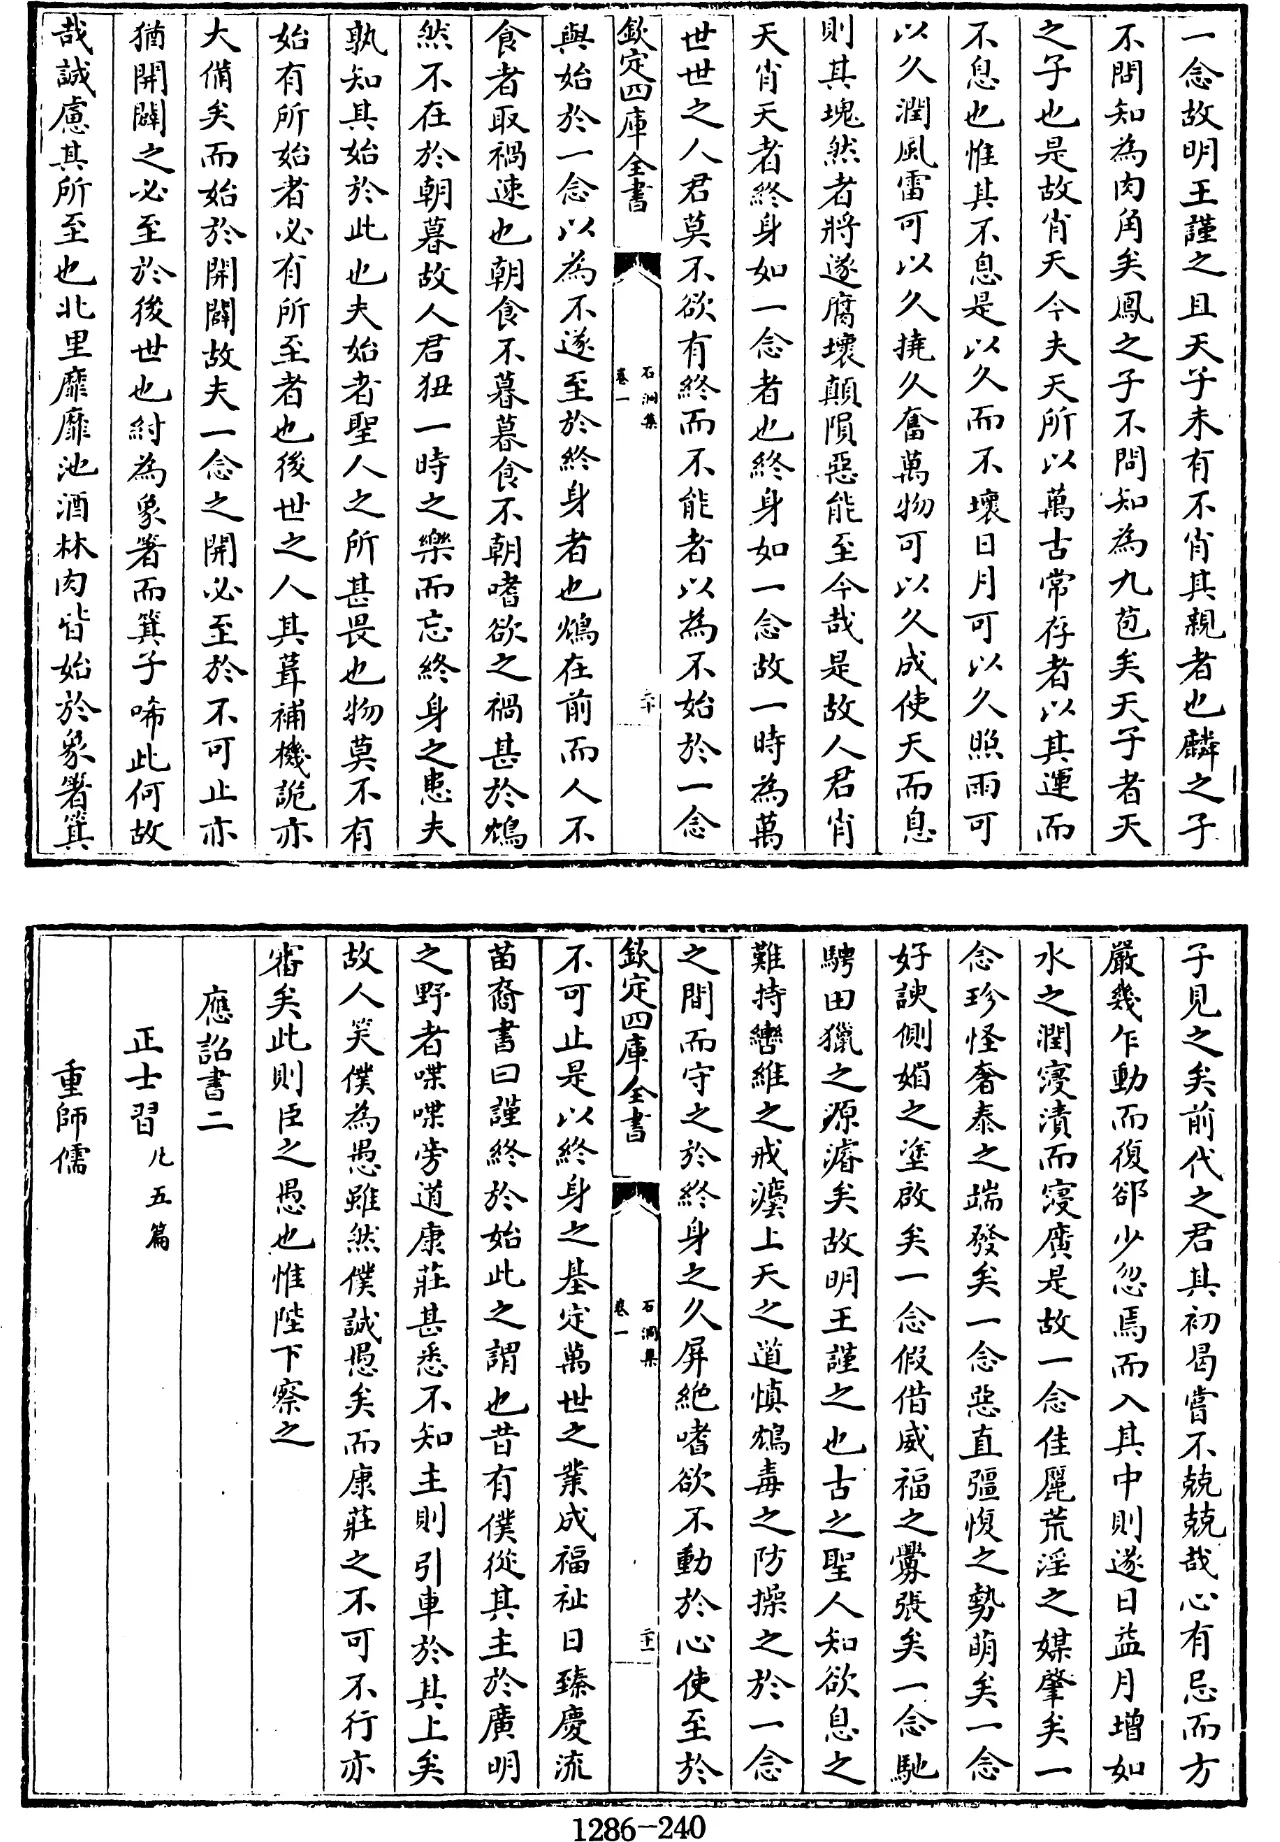 一念故明王謹之且天子未有不肖其親者也麟之子
不問知為肉角矣鳳之子不問知為九苞矣天子者天
之子也是故肖天今夫天所以萬古常存者以其運而
不息也惟其不息是以久而不壞日月可以久照雨可
以久潤風雷可以久撓久奮萬物可以久成使天而息
則其塊然者將遂腐壞顛隕惡能至今哉是故人君肖
天肖天者終身如一念者也終身如一念故一時為萬
世世之人君莫不欲有終而不能者以為不始於一念
欽定四庫全書
石洞集
卷一
二十
與始於一念以為不遂至於終身者也鴆在前而人不
食者取禍速也朝食不暮暮食不朝嗜欲之禍甚於鴆
然不在於朝暮故人君狃一時之樂而忘終身之患夫
孰知其始於此也夫始者聖人之所甚畏也物莫不有
始有所始者必有所至者也後世之人其葺補機詭亦
大備矣而始於開闢故夫一念之開必至於不可止亦
猶開闢之必至於後世也紂為象箸而箕子唏此何故
哉誠慮其所至也北里靡靡池酒林肉皆始於象箸箕
子見之矣前代之君其初曷嘗不兢兢哉心有忌而方
嚴幾乍動而復郤少忽焉而入其中則遂日益月增如
水之潤寖漬而寖廣是故一念佳麗荒淫之媒肇矣一
念珍怪奢泰之端發矣一念惡直彊愎之勢萌矣一念
好諛側媚之塗啟矣一念假借威福之釁張矣一念馳
騁田獵之源濬矣故明王謹之也古之聖人知欲息之
難持轡維之戒瀆上天之道慎鴆毒之防操之於一念
之間而守之於終身之久屏絶嗜欲不動於心使至於
欽定四庫全書
石洞集
卷一
二十一
不可止是以終身之基定萬世之業成福祉日臻慶流
苗裔書曰謹終於始此之謂也昔有僕從其主於廣明
之野者喋喋旁道康莊甚悉不知主則引車於其上矣
故人笑僕為愚雖然僕誠愚矣而康莊之不可不行亦
審矣此則臣之愚也惟陛下察之
應詔書二
正士習 凡五篇
重師儒
1286-240